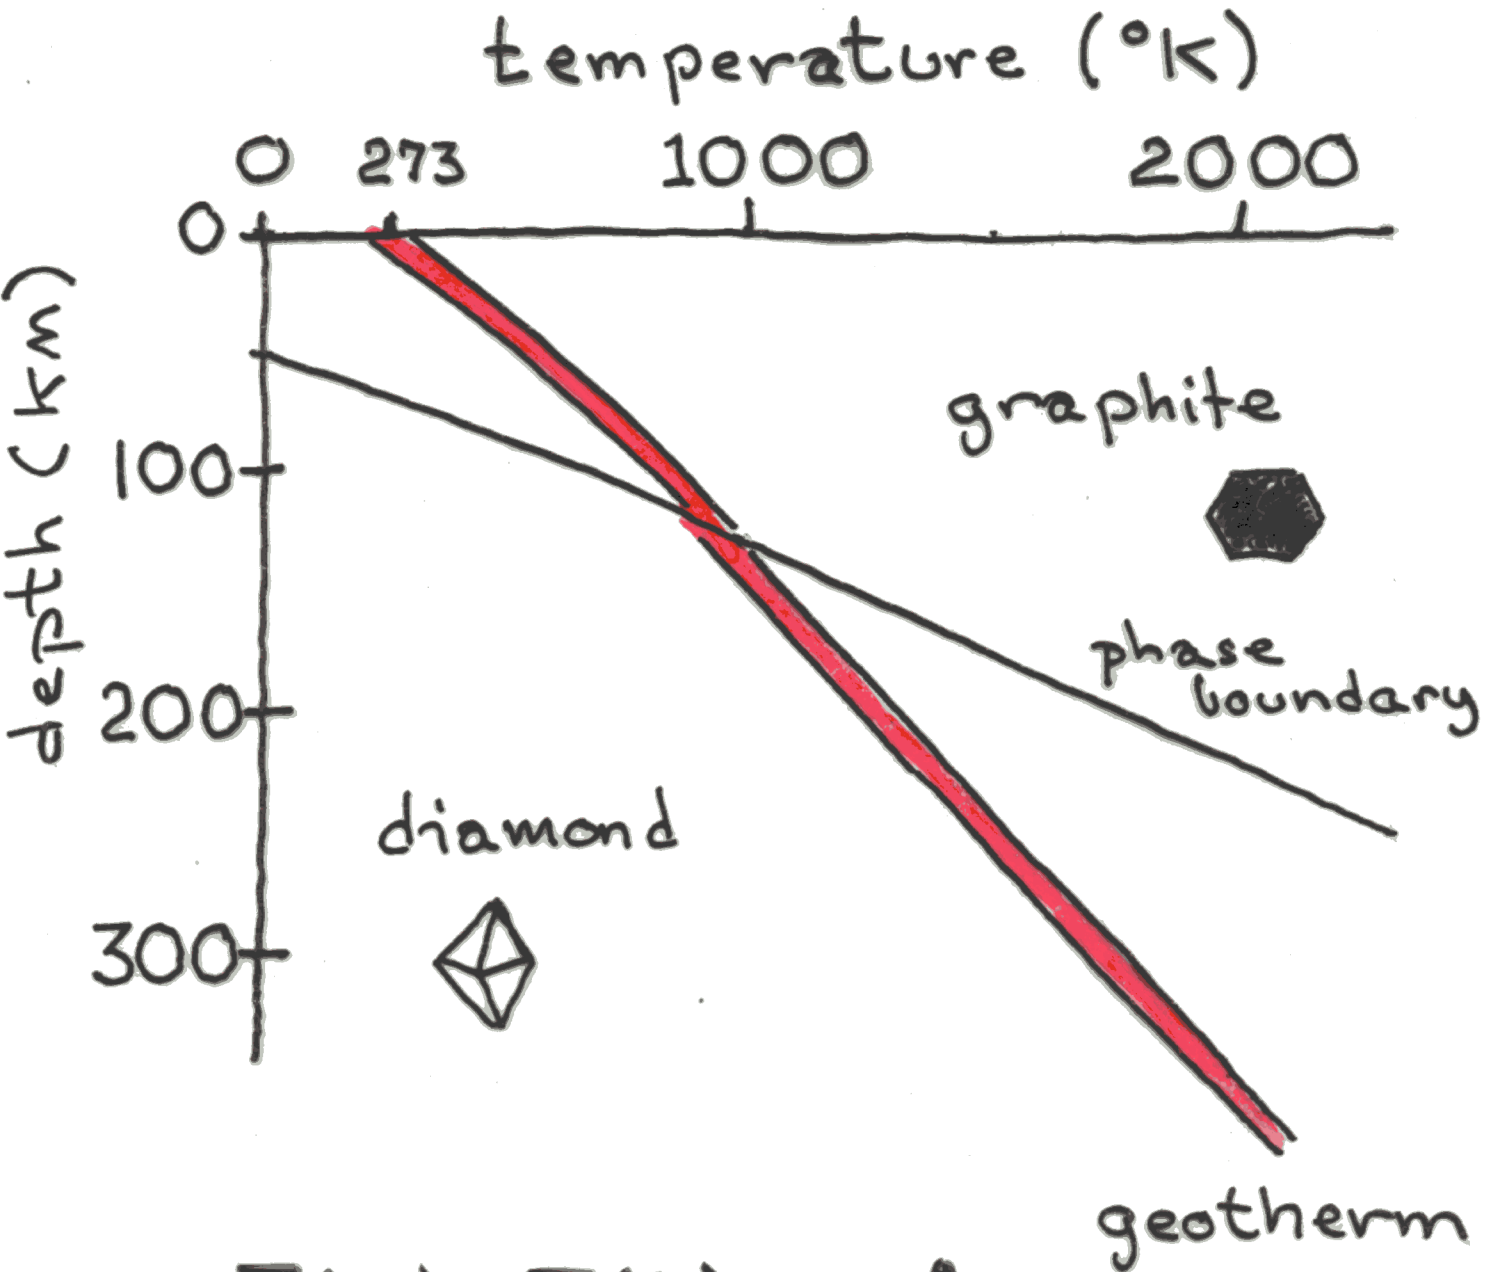 temperature (°K)
0 273 1000 2000
0
depth (km)
100
200
300
graphite
phase
boundary
diamond
geotherm